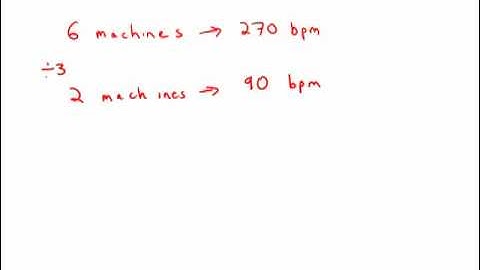 6 machines → 270 bpm
÷3
2 machines → 90 bpm